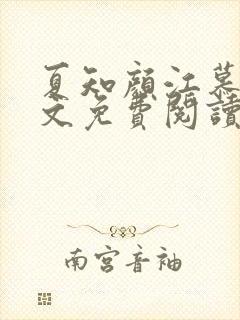 夏知顏江慕
文免費閱讀
南宮音袖